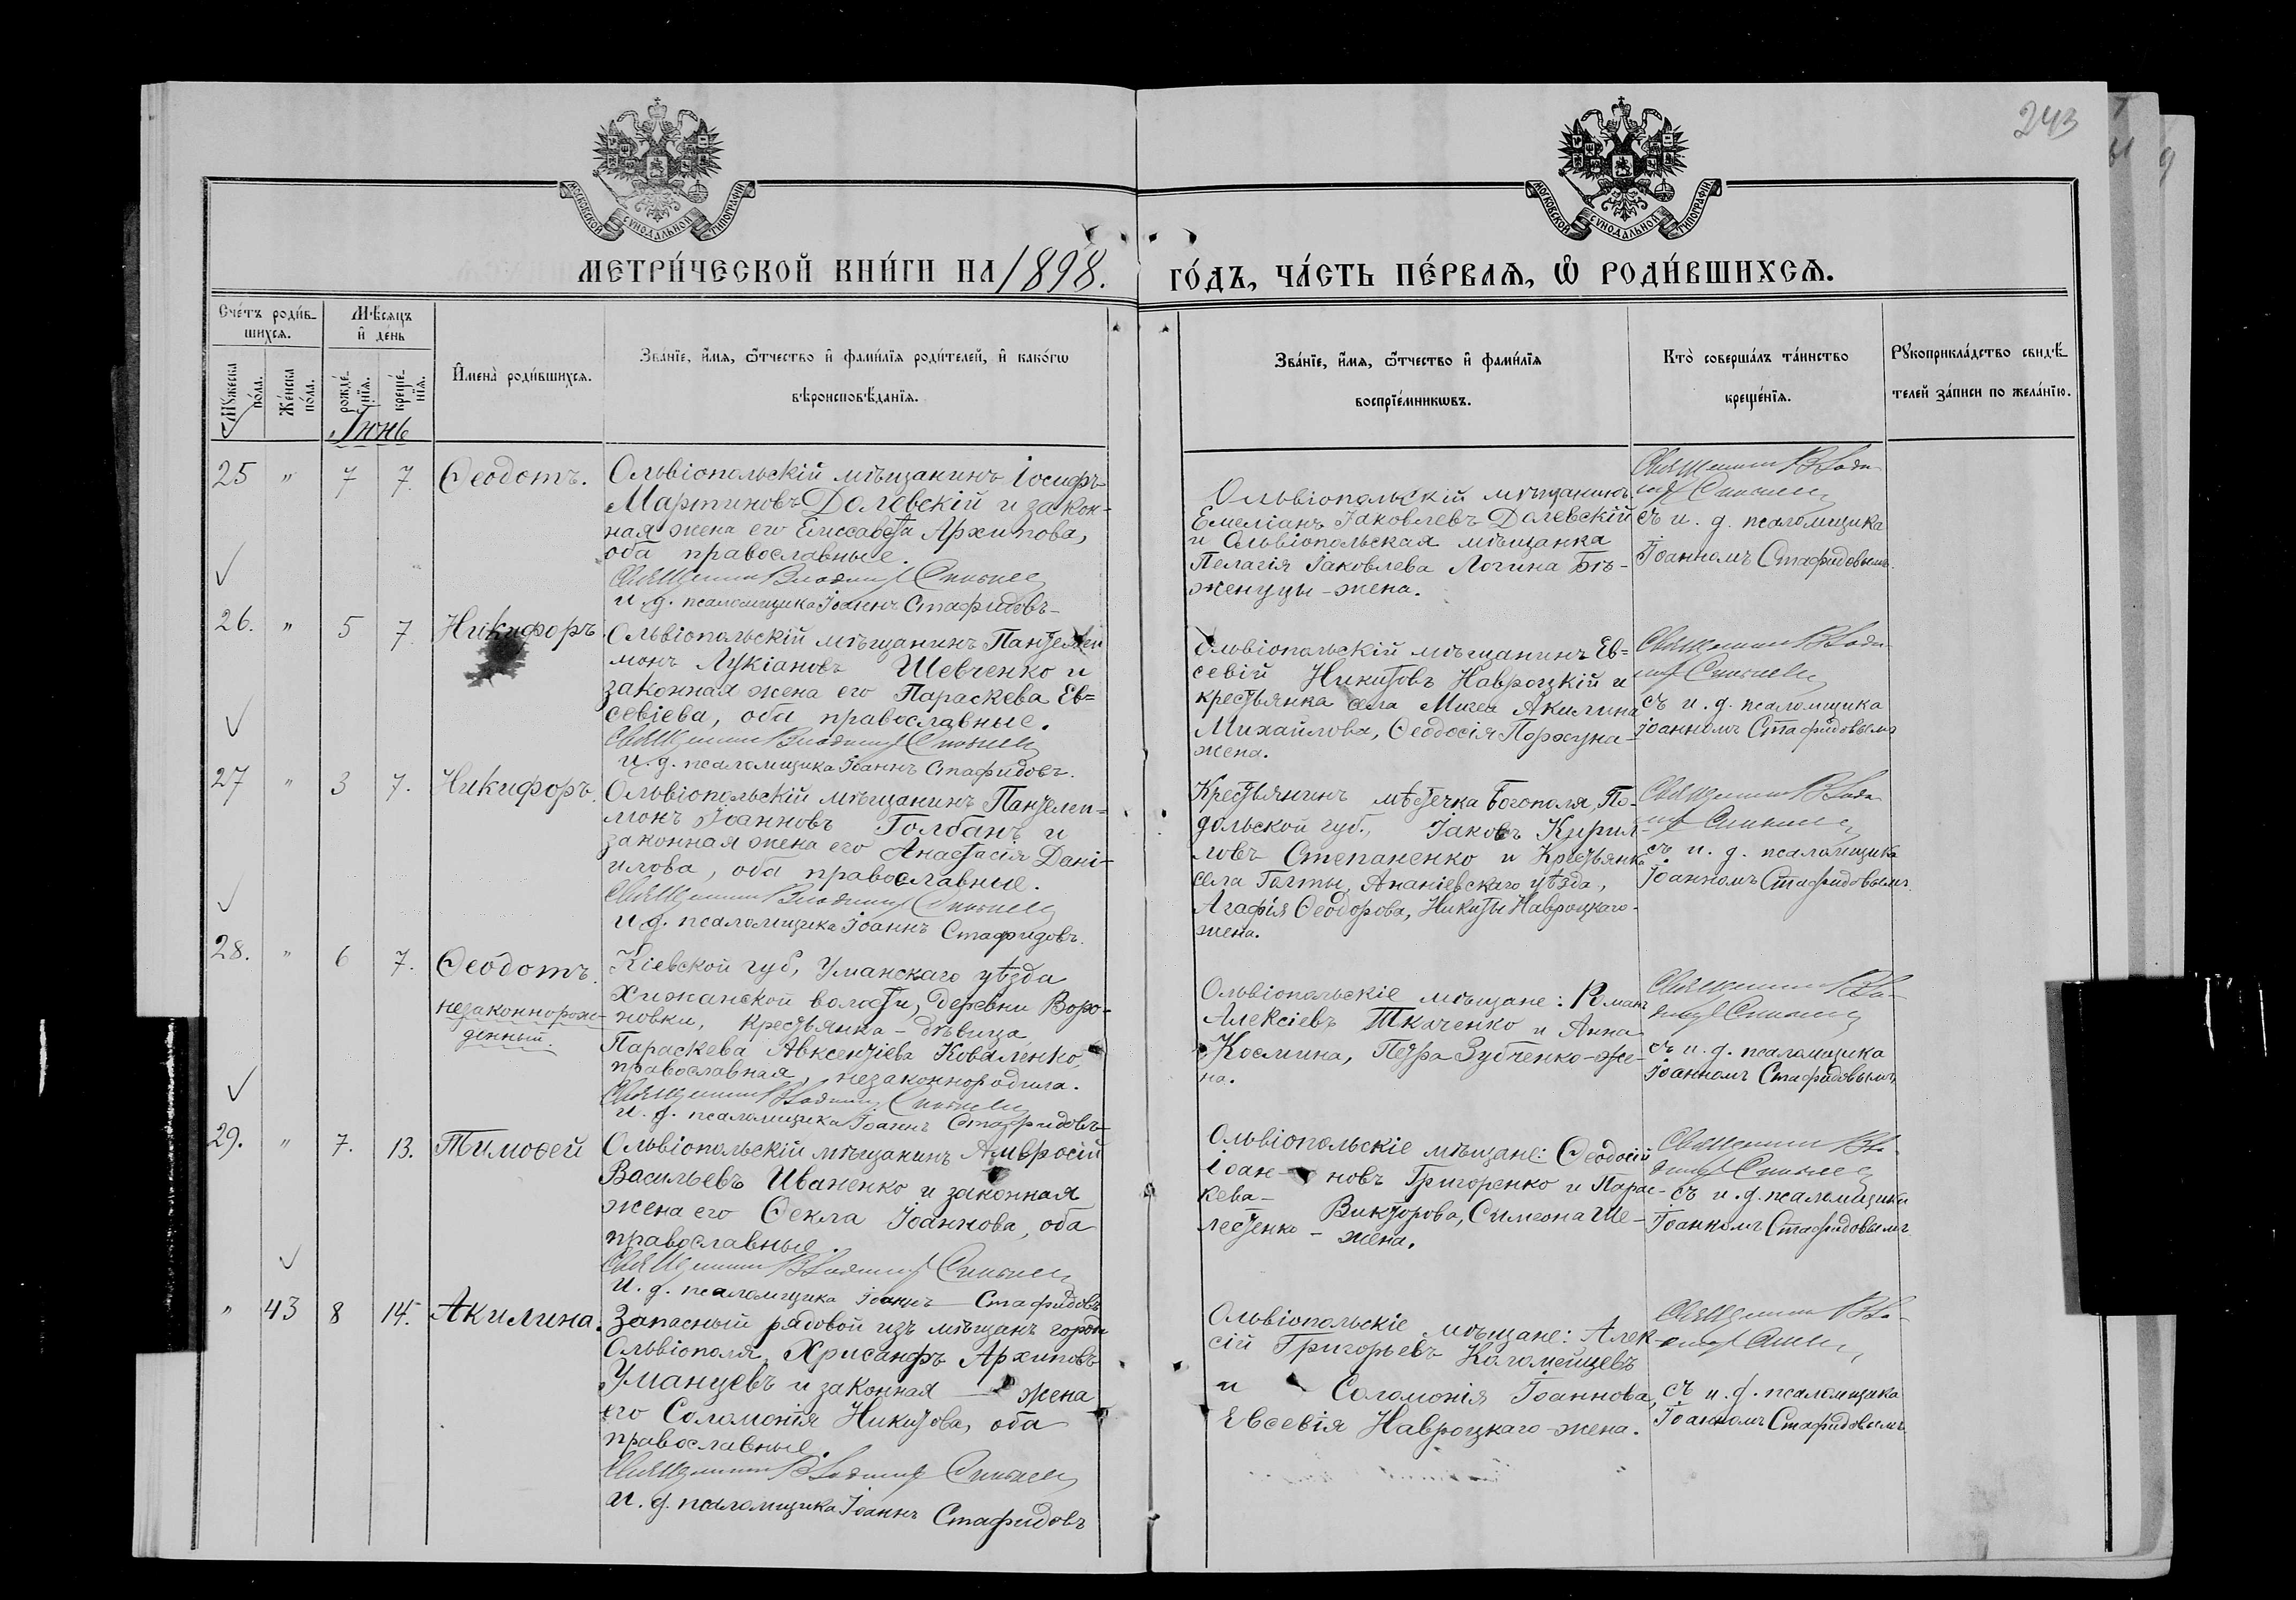 243
МОСКОВСКОЙ СѴНОДАЛЬНОЙ ТИПОГРАФІИ
МОСКОВСКОЙ СѴНОДАЛЬНОЙ ТИПОГРАФІИ
МЕТРИ́ЧЕСКОЙ КНИ́ГИ НА 1898. ГО́ДЪ, ЧА́СТЬ ПЕ́РВАЯ, Ѡ҆ РОДИ́ВШИХСЯ.
Сче́тъ роди́в-
шихся.
Мѣ́сяцъ
и҆ де́нь
Мꙋ́жеска
по́ла.
Же́нска
по́ла.
рожде́-
нїя.
креще́-
нїя.
Іюнь
И҆мена̀ роди́вшихся.
Зва́нїе, и҆́мя, ѻ҆́тчество и҆ фами́лїя роди́телей, и҆ како́гѡ
вѣроисповѣ́данїя.
Зва́нїе, и҆́мя, ѻ҆́тчество и҆ фами́лїя
воспрїе́мникѡвъ.
Кто̀ соверша́лъ та́инство
креще́нїя.
Рꙋкоприкла́дство свидѣ́-
телей за́писи по жела́нїю.
25 " 7 7. Ѳеодотъ.
Ольвіопольскій мѣщанинъ Іосифъ
Мартиновъ Долевскій и закон-
ная жена его Елисавета Архипова,
оба православные.
Священникъ Владимір
и. д. псаломщика Іоаннъ Стафидовъ
Ольвіопольскій мѣщанинъ
Емеліанъ Іаковлевъ Долевскій
и Ольвіопольская мѣщанка
Пелагія Іаковлева Логина Бѣ-
женуцы-жена.
Священникъ Влади-
мір
съ и. д. псаломщика
Іоанномъ Стафидовымъ.
26. " 5 7. Никифоръ.
Ольвіопольскій мѣщанинъ Пантелей
монъ Лукіановъ Шевченко и
законная жена его Параскева Ев=
севіева, оба православные.
Священникъ Владимір
и. д. псаломщика Іоаннъ Стафидовъ.
Ольвіопольскій мѣщанинъ Ев=
севій Никитовъ Навроцкій и
крестьянка села Мигеи Акилина
Михайлова, Ѳеодосія Порхуна-
жена.
Священникъ Влади-
мір
съ и. д. псаломщика
Іоанномъ Стафидовымъ
27 " 3 7. Никифоръ.
Ольвіопольскій мѣщанинъ Пантелеи=
монъ Іоанновъ Голбанъ и
законная жена его Анастасія Дані-
илова, оба православные.
Священникъ Владимір
и. д. псаломщика Іоаннъ Стафидовъ.
Крестьянинъ мѣстечка Богополя, По-
дольской губ., Іаковъ Кирил-
ловъ Степаненко и крестьянка
села Гольты, Ананіевскаго уѣзда,
Агафія Ѳеодорова, Никиты Навроцкаго-
жена.
Священникъ Влади
мір
съ и. д. псаломщика
Іоанномъ Стафидовымъ.
28. " 6 7. Ѳеодотъ.
незаконнорож-
денный.
Кіевской губ., Уманскаго уѣзда
Хижанской волости, деревни Воро-
новки, крестьянка-дѣвица
Параскева Авксентіева Коваленко,
православная, незаконнородила.
Священникъ Владимір
и. д. псаломщика Іоаннъ Стафидовъ
Ольвіопольскіе мѣщане: Романъ
Алексіевъ Ткаченко и Анна
Космина, Петра Зубченко-же-
на.
Священникъ Вла-
димір
съ и. д. псаломщика
Іоанномъ Стафидовымъ
29. " 7. 13. Тимоѳей
Ольвіопольскій мѣщанинъ Амвросій
Васильевъ Иваненко и законная
жена его Ѳекла Іоаннова, оба
православные.
Священникъ Владимір
И. д. псаломщика Іоаннъ Стафидовъ
Ольвіопольскіе мѣщане: Ѳеодосій
Іоан- новъ Григоренко и Парас-
кева- Викторова, Симеона Ше-
лестенко - жена.
Священникъ Вла-
димір
съ и. д. псаломщика
Іоанномъ Стафидовымъ.
" 43 8 14. Акилина.
Запасный рядовой изъ мѣщанъ города
Ольвіополя, Хрисанфъ Архиповъ
Уманцевъ и законная жена
его Соломонія Никитова, оба
православные.
Священникъ Владимір
и. д. псаломщика Іоаннъ Стафидовъ
Ольвіопольскіе мѣщане: Алек-
сій Григорьевъ Коломейцевъ
и Соломонія Іоаннова,
Евсевія Навроцкаго-жена.
Священникъ Вла-
димір
съ и. д. псаломщика
Іоанномъ Стафидовымъ